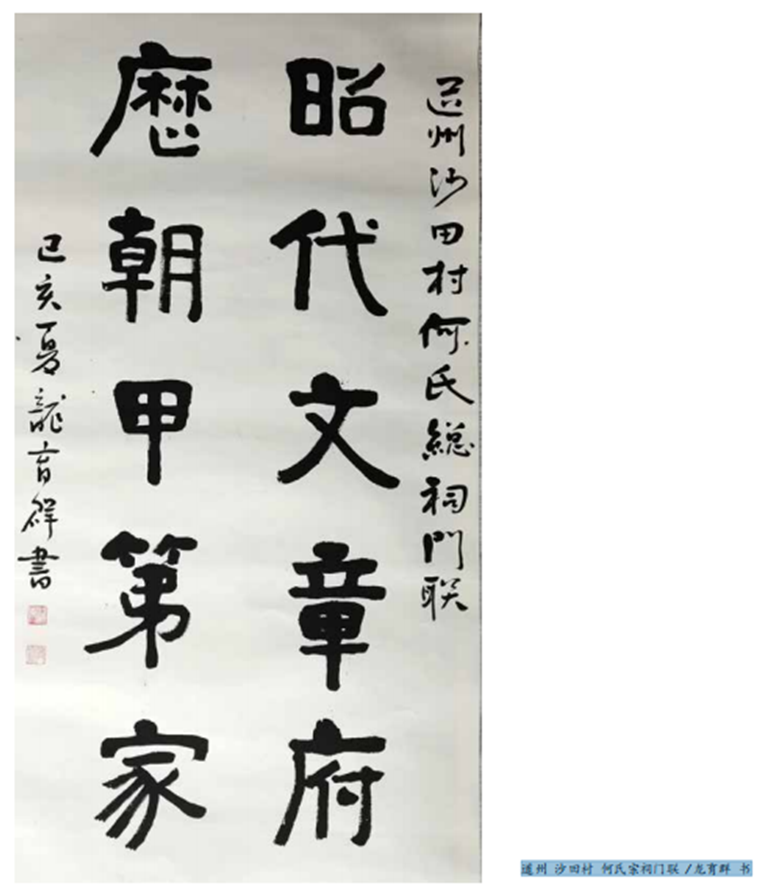 道州沙田村何氏總祠門联
昭代文章府
歷朝甲第家
己亥夏龍育群書
道州 沙田村 何氏宗祠门联 /龙育群 书